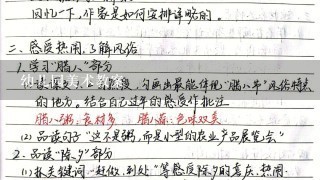 回忆一下，作家是如何安排详略的。
二、感受热闹，了解风俗
1.学习“腊八”部分
勾画出最能体现“腊八节”风俗特点
的地方。结合自己过年的感受作批注
腊八粥：食材多 腊八蒜：色味双美
(2)品读句子“这不是粥，而是小型的农业产品展览会”
2.品读“除夕”部分
(1)抓关键词“赶做、到处”等感受除夕的喜庆、热闹
幼儿园美术教案